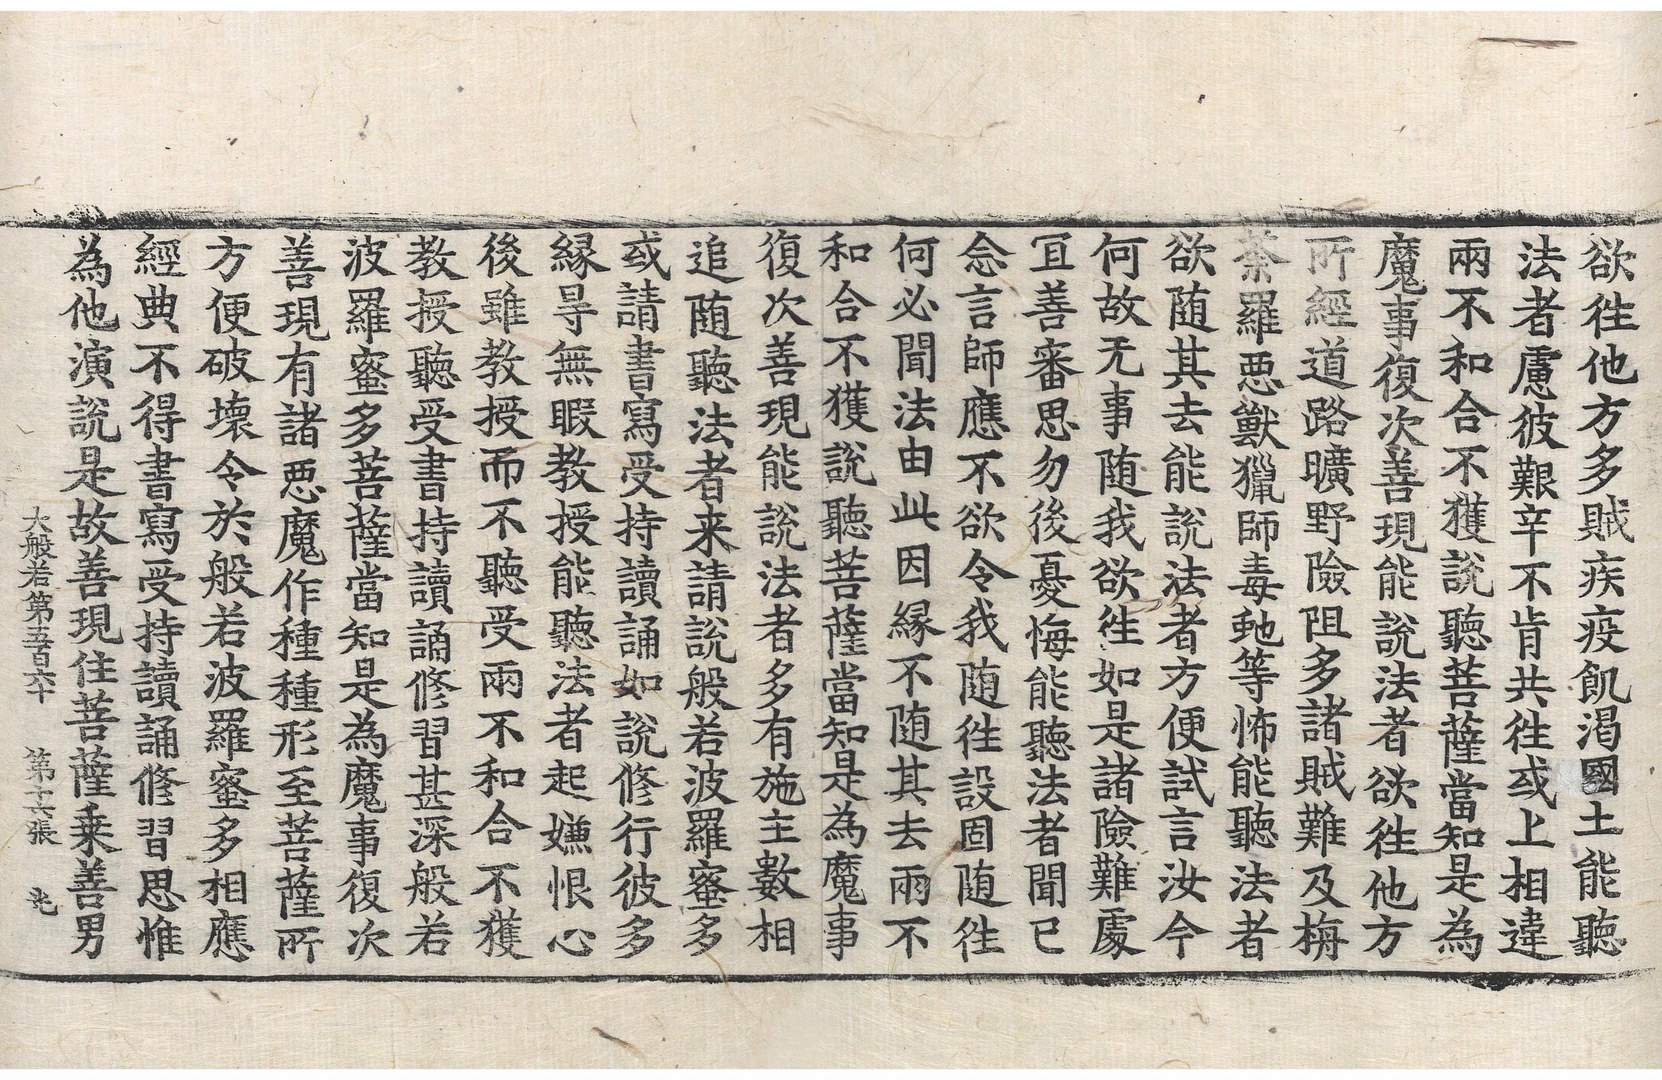 欲徃他方多賊疾疫飢渇國土能聽
法者慮彼艱辛不肯共徃或上相違
兩不和合不獲說聽菩薩當知是為
魔事復次善現能說法者欲徃他方
所經道路曠野險阻多諸賊難及旃
荼羅惡獸獵師毒虵等怖能聽法者
欲随其去能說法者方便試言汝今
何故无事随我欲徃如是諸險難處
冝善審思勿後憂悔能聽法者聞已
念言師應不欲令我随徃設固随徃
何必聞法由此因縁不随其去兩不
和合不獲說聽菩薩當知是為魔事
復次善現能說法者多有施主數相
追随聽法者来請說般若波羅蜜多
或請書寫受持讀誦如說修行彼多
縁㝵無暇教授能聽法者起嫌恨心
後雖教授而不聽受兩不和合不獲
教授聽受書持讀誦修習甚深般若
波羅蜜多菩薩當知是為魔事復次
善現有諸惡魔作種種形至菩薩所
方便破壞令於般若波羅蜜多相應
經典不得書寫受持讀誦修習思惟
為他演說是故善現住菩薩乗善男
大般若第五百六十 第十六張 光